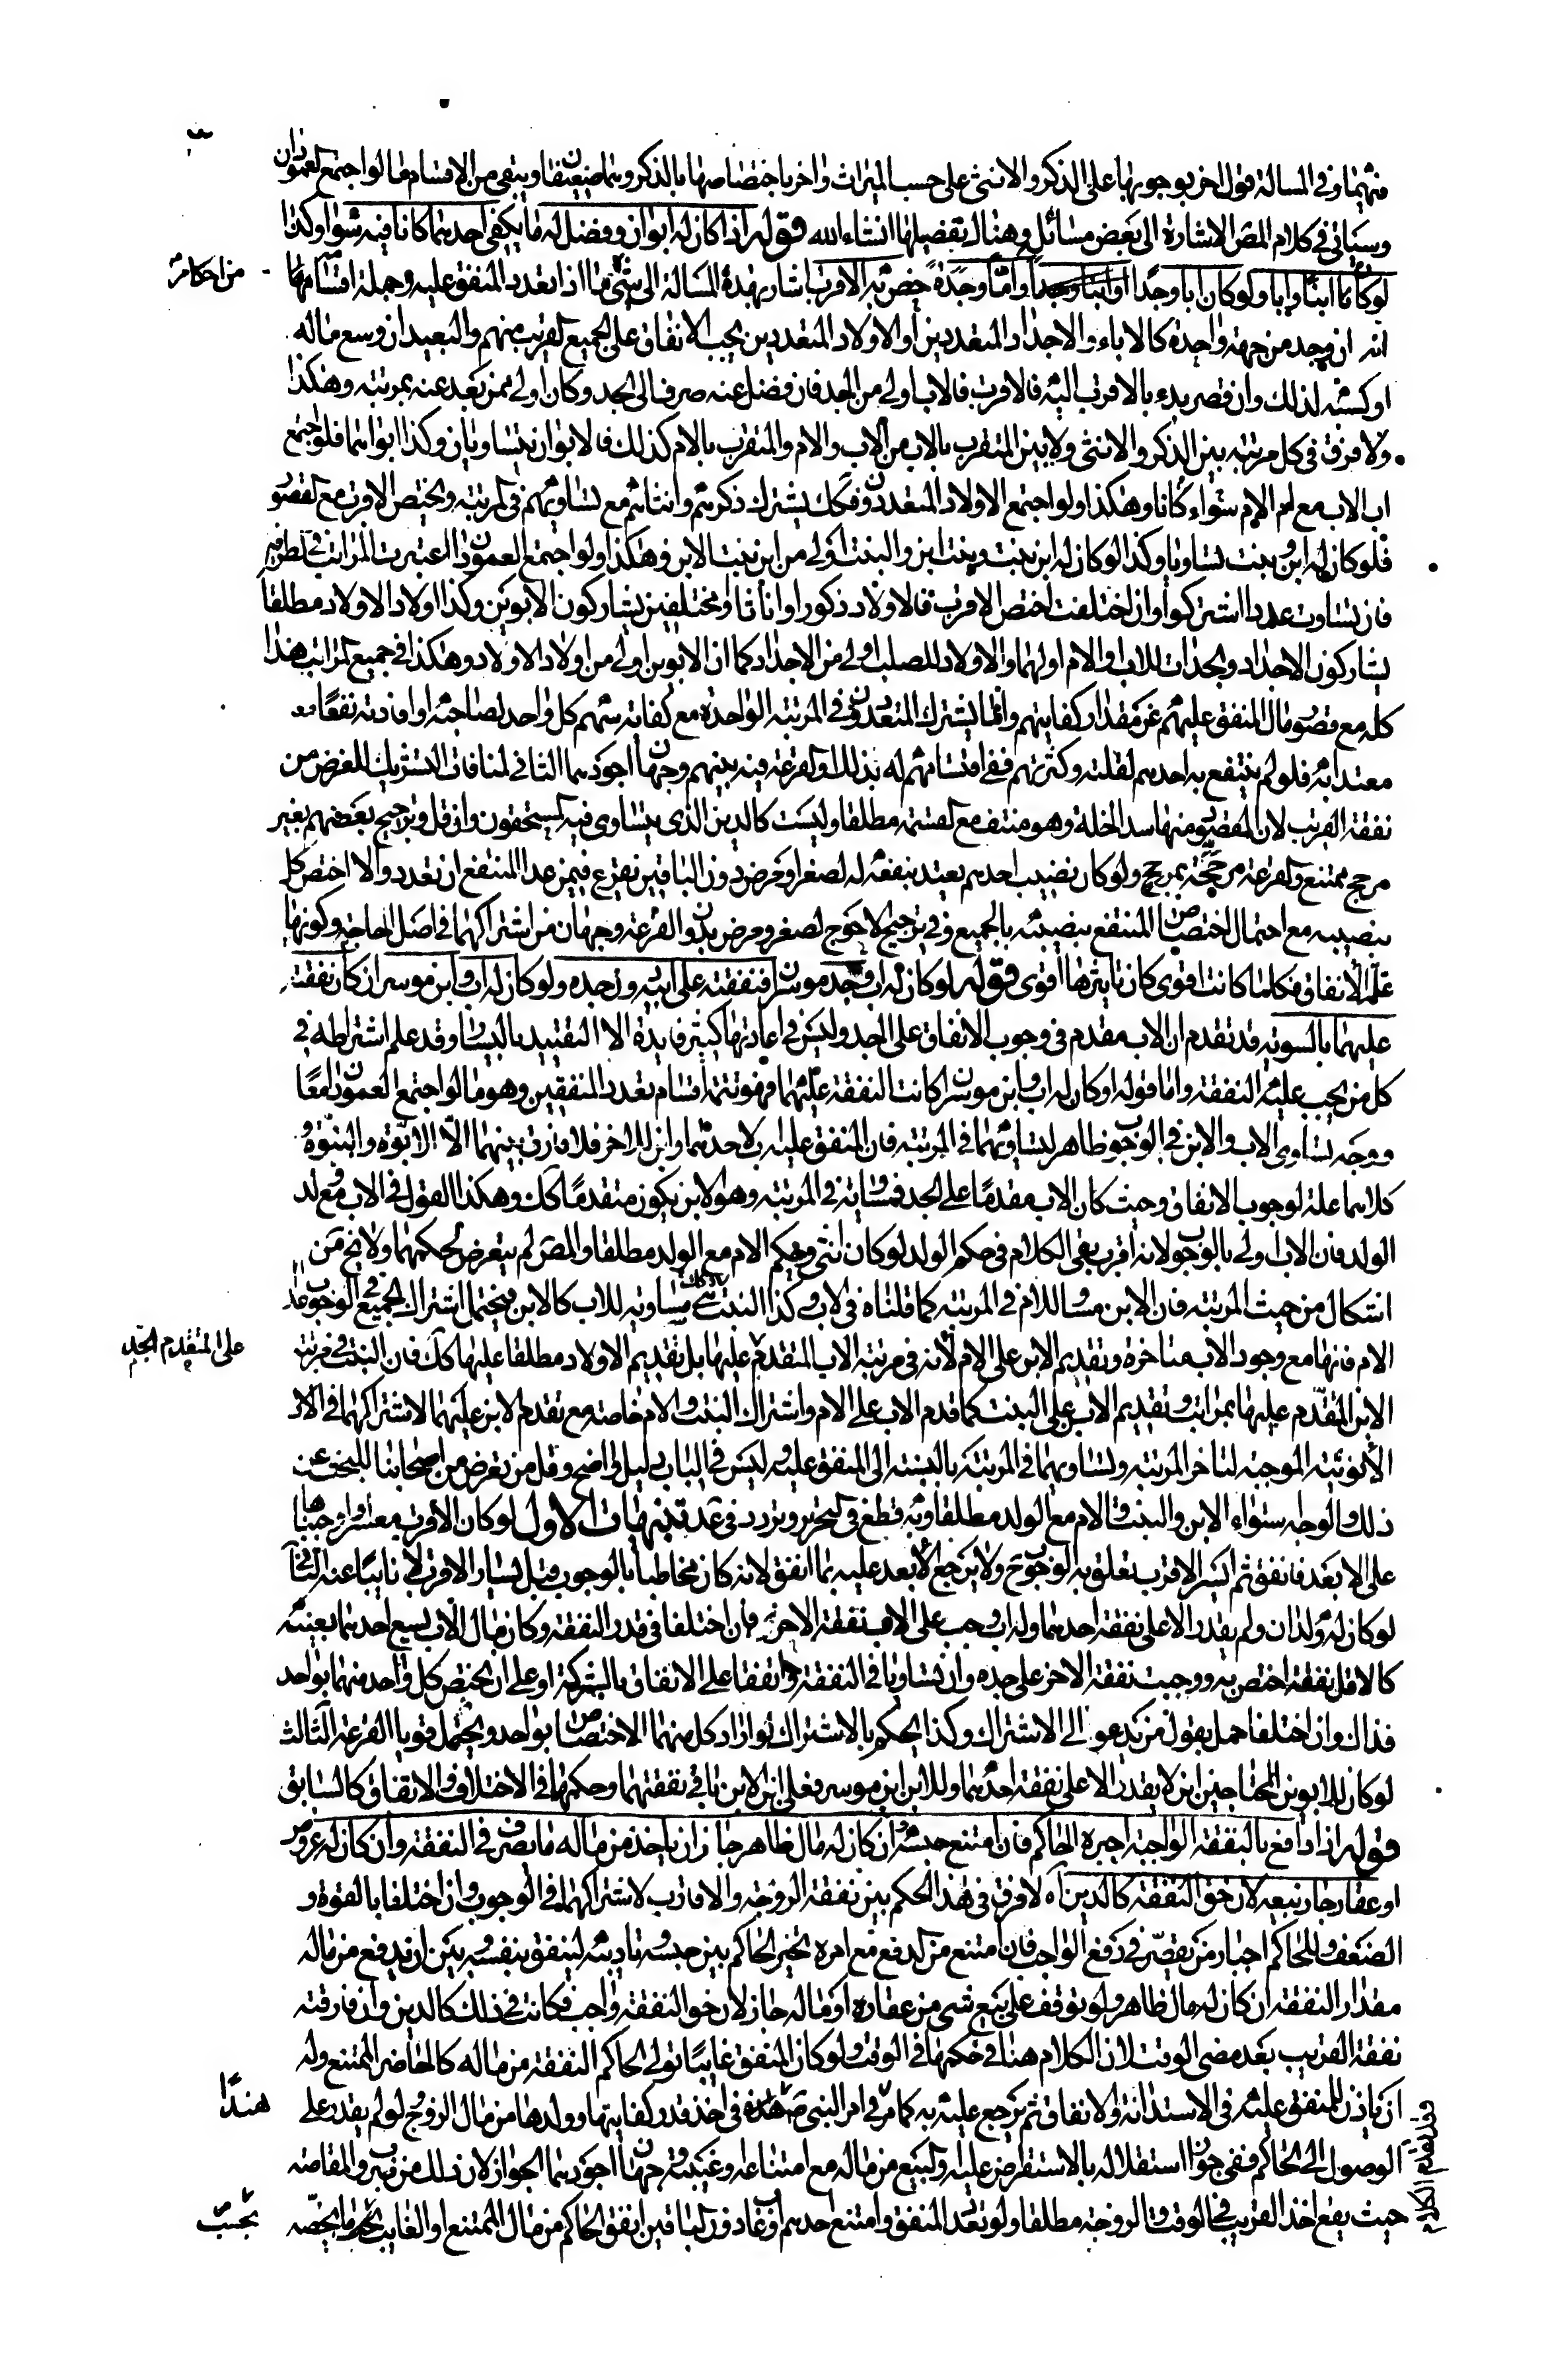 منهما وفي المسالة قول اخر بوجوبها على الذكر والانثى على حسب الميراث واخر باختصاصها بالذكر وهما ضعيفان ويبقى من الاقسام ما لو اجتمع العمودان
وسياتي في كلام المص الاشارة الى بعض مسائله وهناك تفصيلها انشاء الله قوله اذا كان له ابوان وفضل له ما يكفي احدهما كانا فيه سواء وكذا
لو كانا ابنا وابا ولو كان ابا وجدا او اما وجدة خص به الاقرب اشار بهذه المسالة الى شيء مما اذا تعدد المنفق عليه وجملة اقسامها
من احكامه
انه ان وجد من جهة واحدة كالاباء والاجداد المتعددين او الاولاد المتعددين يجب الانفاق على الجميع القريب منهم والبعيد ان وسع ماله
او كسبه لذلك وان قصر بدء بالاقرب اليه فالاقرب فالاب اولى من الجد فان فضل عنه صرف الى الجد وكان اولى ممن بعد عنه بمرتبة وهكذا
ولا فرق في كل مرتبة بين الذكر والانثى ولا بين المتقرب بالاب من الاب والام والمتقرب بالام كذلك فالابوان يتساويان وكذا ابواهما فلو اجتمع
اب الاب مع ام الام سواء كانا وهكذا ولو اجتمع الاولاد المتعددون فكك يشترك ذكرهم وانثاهم مع تساويهم في المرتبة ويختص الاقرب مع القصور
فلو كان له ابن وبنت تساويا وكذا لو كان له ابن بنت وبنت ابن والبنت اولى من ابن بنت الابن وهكذا ولو اجتمع العمودان اعتبرت المراتب في الطرفين
فان تساوت عددا اشتركوا وان اختلفت اختص الاقرب فالاولاد ذكورا او اناثا ومختلفين يشاركون الابوين وكذا اولاد الاولاد مطلقا
يشاركون الاجداد والجدات للاب والام اولهما والاولاد للصلب اولى من الاجداد كما ان الابوين اولى من اولاد الاولاد وهكذا في جميع المراتب هذا
كله مع قصور مال المنفق عليهم عن مقدار كفايتهم وانما يشترك المتعددون في المرتبة الواحدة مع كفايته سهم كل واحد لصاحبه او افادته نفعا
معتدا به فلو لم ينتفع به احدهم لقلته وكثرتهم ففي اقتسامهم له بذلك والقرعة فيه بينهم وجهان اجودهما الثاني لمنافات التشريك للغرض من
نفقة القريب لان المقصود منها سد الخلة وهو منتف مع القسمة مطلقا وليست كالدين الذي يتساوى فيه المستحقون وان قل وترجيح بعضهم بغير
مرجح ممتنع والقرعة مرجحة بمرجح ولو كان نصيب احدهم يعتد بنفعه له لصغر او مرض دون الباقين يقرع فيمن عدا المنتفع ان تعدد والا اختص كل
بنصيبه مع احتمال اختصاص المنتفع بنصيبه بالجميع وفي ترجيح الاحوج لصغر ومرض بدون القرعة وجهان من اشتراكهما في اصل الحاجة وكونها
علة الانفاق فكلما كانت اقوى كان تاثيرها اقوى قوله لو كان له اب وجد موسران فنفقته على ابيه دون جده ولو كان له اب وابن موسران كان نفقته
عليهما بالسوية قد تقدم ان الاب مقدم في وجوب الانفاق على الجد وليس في اعادتها كثير فايدة الا التقييد باليسار وقد علم اشتراطه في
كل من يجب عليه النفقة واما قوله او كان له اب وابن موسران كانت النفقة عليهما فهو تتمة اقسام تعدد المنفقين وهو ما لو اجتمع العمودان معا
ووجه تساوي الاب والابن في الوجوب ظاهر لتساويهما في المرتبة فان المنفق عليه لاحدهما وابن للاخر فلا فارق بينهما الا الابوة والبنوة و
كلاهما علة لوجوب الانفاق وحيث كان الاب مقدما على الجد فمساويه في المرتبة وهو الابن يكون متقدما كك وهكذا القول في الاب مع ولد
الولد فان الاب اولى بالوجوب لانه اقرب بقي الكلام في حكم الولد لو كان انثى وحكم الام مع الولد مطلقا والمص لم يتعرض لحكمهما ولا يخ من
اشكال من حيث المرتبة فان الابن مساو للام في المرتبة كما قلناه في الاب وكذا البنت مساوية للاب كالابن فيحتمل اشتراك الجميع في الوجوب
الام فانها مع وجود الاب متاخرة وتقديم الابن على الام لانه في مرتبة الاب المتقدم عليها بل تقديم الاولاد مطلقا عليها كك فان البنت في مرتبة
على المتقدم الجد
الابن المتقدم عليها بمراتب وتقديم الاب على البنت كما قدم الاب على الام واشتراك البنت والام خاصة مع تقدم الابن عليهما لاشتراكهما في الا
الانوثية الموجبة لتاخر المرتبة وتساويهما في المرتبة بالنسبة الى المنفق عليه وليس في الباب دليل واضح وقل من تعرض من اصحابنا للبحث عن
ذلك والوجه ستواء الابن والبنت والام مع الولد مطلقا وبه قطع في التحرير وتردد في عد تنبيهات الاول لو كان الاقرب معسرا وجبناها
على الابعد فانفق ثم ايسر الاقرب تعلق به الوجوب ح ولا يرجع الابعد عليه بما انفق لانه كان مخاطبا بالوجوب قبل يسار الاقرب لا نايبا عنه الثاني
لو كان له ولدان ولم يقدر الا على نفقة احدهما وله اب وجب على الاب نفقة الاخر فان اختلفا في قدر النفقة وكان مال الاب يسع احدهما بعينه
كالاقل نفقة اختص به ووجبت نفقة الاخر على جده وان تساويا في النفقة واتفقا على الانفاق بالشركة او على ان يختص كل واحد منهما بواحد
فذاك وان اختلفا عمل بقول من يدعو الى الاشتراك وكذا الحكم بالاشتراك لو اراد كل منهما الاختصاص بواحد ويحتمل قويا القرعة الثالث
لو كان للابوين المحتاجين ابن لا يقدر الا على نفقة احدهما وللابن ابن موسر فعلى ابن الابن باقي نفقتهما وحكمهما في الاختلاف والاتفاق كالسابق
قوله اذا دافع بالنفقة الواجبة اجبره الحاكم فان امتنع حبسه وان كان له مال ظاهر جاز ان ياخذ من ماله ما يصرف في النفقة وان كان له عروض
او عقار جاز بيعه لان حق النفقة كالدين آه لا فرق في هذا الحكم بين نفقة الزوجة والاقارب لاشتراكهما في الوجوب وان اختلفا بالقوة و
الضعف وللحاكم اجبار من يقصر في دفع الواجب فان امتنع من الدفع مع امره تخير الحاكم بين حبسه وتاديبه لينفق بنفسه وبين ان يدفع من ماله
مقدار النفقة ان كان له مال ظاهر ولو توقف على بيع شيء من عقاره او ماله جاز لان حق النفقة واجب فكانت في ذلك كالدين وان فارقته
نفقة القريب بعد مضي الوقت لان الكلام هنا في حكمها في الوقت ولو كان المنفق غايبا تولى الحاكم النفقة من ماله كالحاضر الممتنع وله
ان ياذن للمنفق عليه في الاستدانة والانفاق ثم يرجع عليه به كما مر في امر النبي ص هند في اخذ قدر كفايتها وولدها من مال الزوج لو لم يقدر على
هندا
الوصول الى الحاكم ففي جواز استقلاله بالاستقراض عليه والبيع من ماله مع امتناعه وغيبته وجهان اجودهما الجواز لان ذلك من ضروب المقاصة
حيث يقع اخذ القريب في الوقت والزوجة مطلقا ولو تعدد المنفق وامتنع احدهم او غاب دون الباقين انفق الحاكم من مال الممتنع او الغايب ما يخصه
بحسب